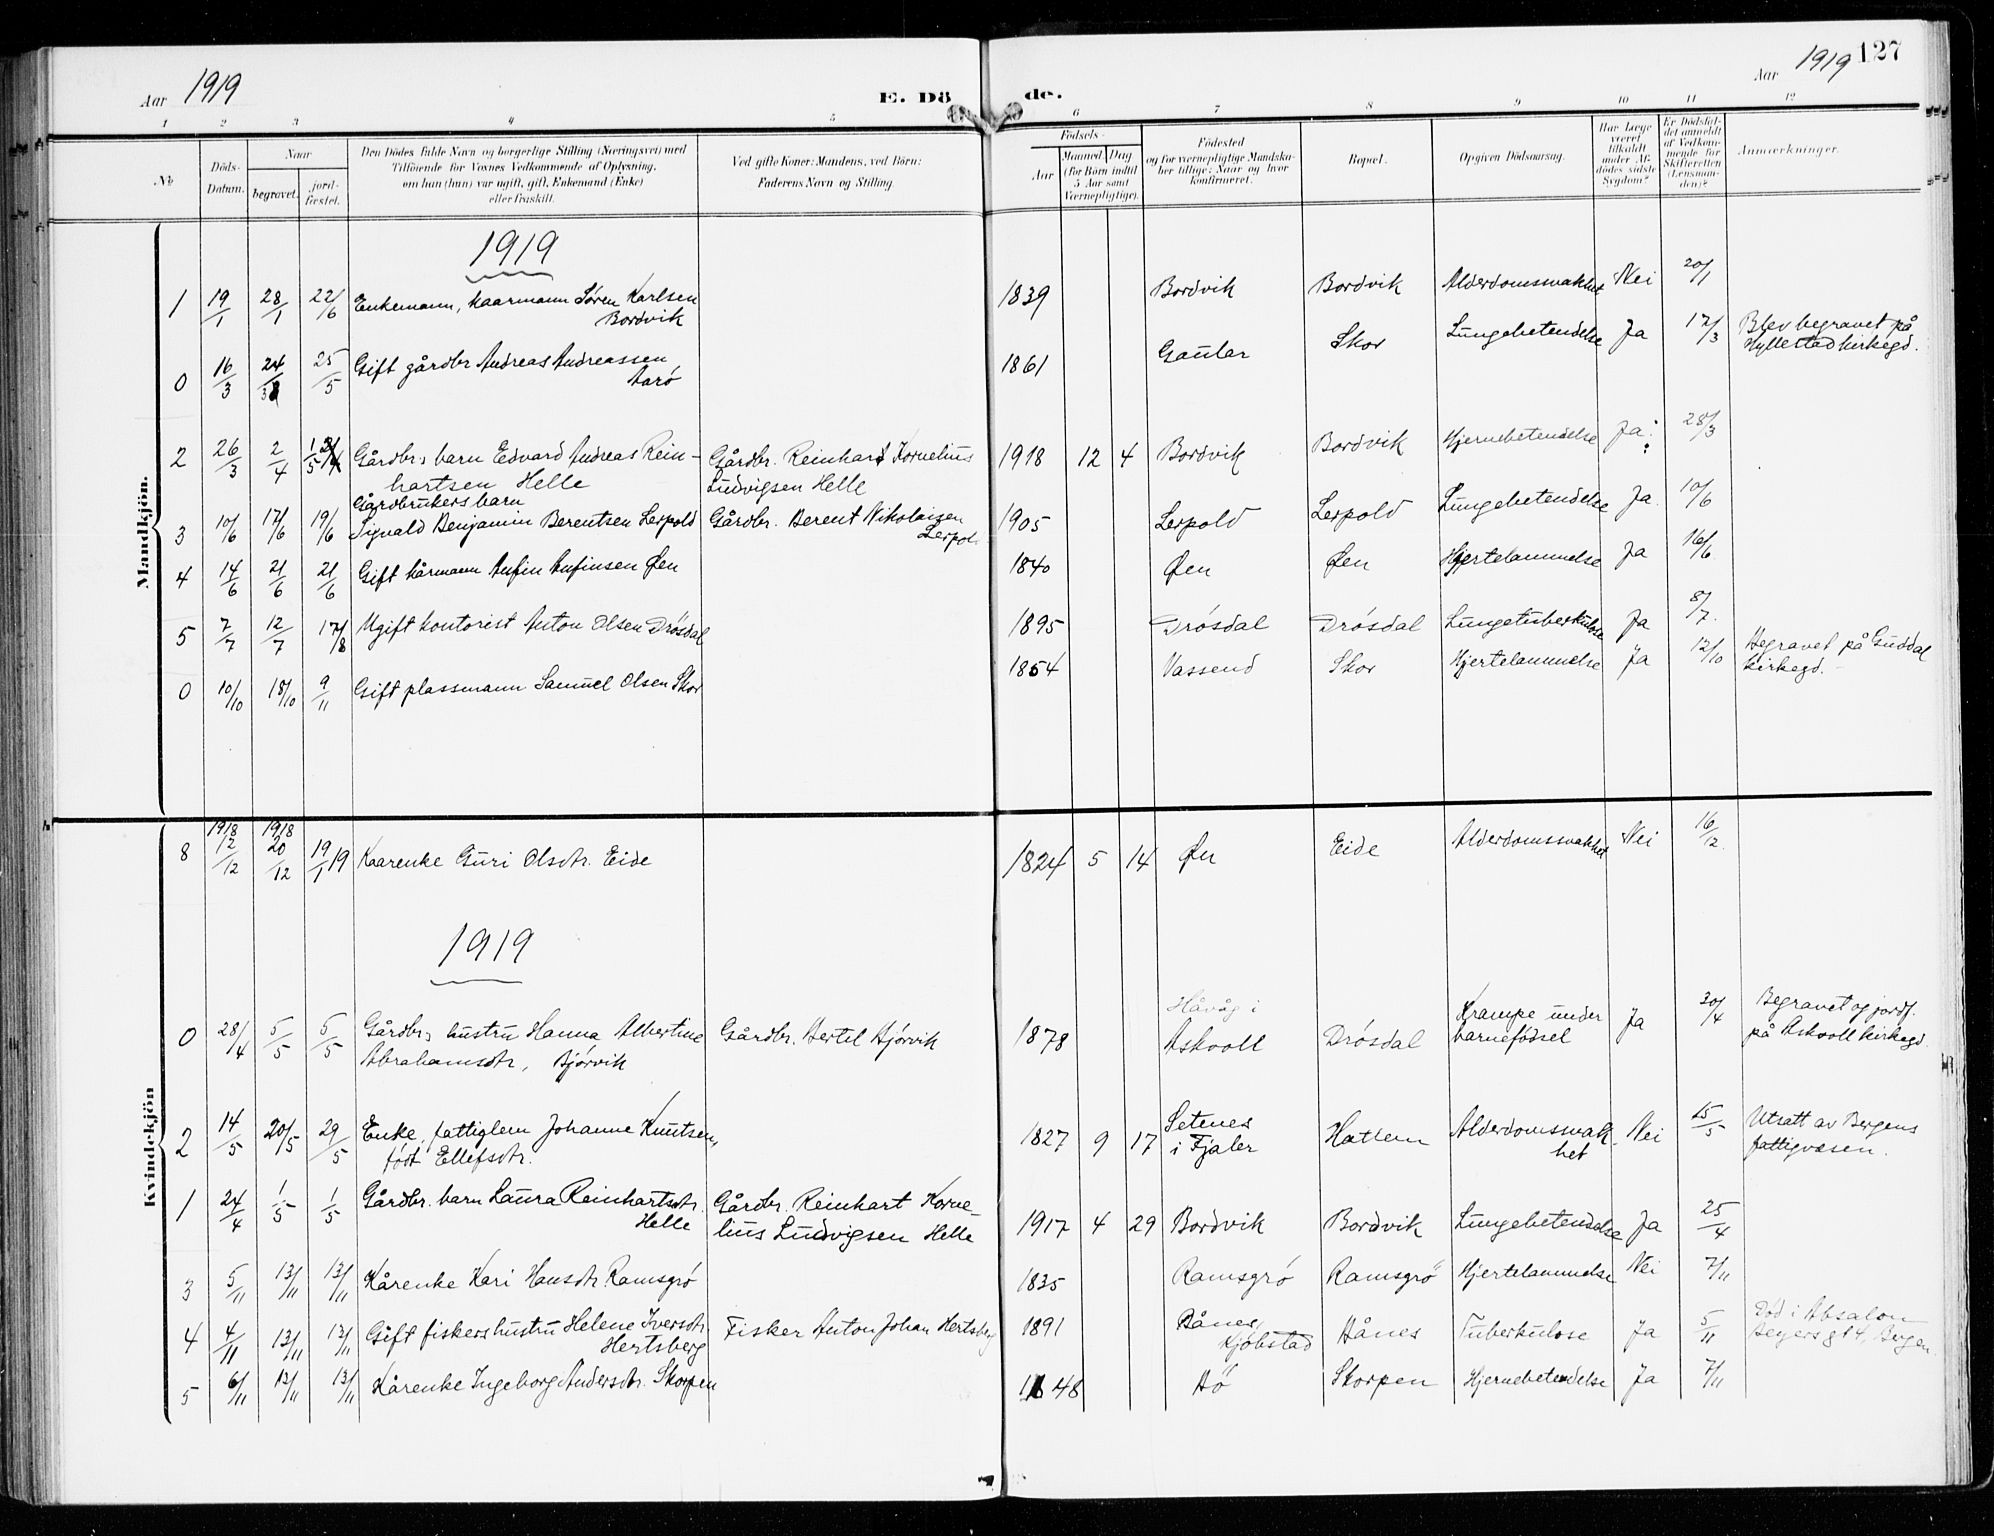 Aar 1919
E. Dö de.
Aar 1919 127
1 2 3 4 5 6 7 8 9 10 11 12
No
Döds-Datum.
Naar
begravet.
jord-fæstet.
Den Dödes fulde Navn og borgerlige Stilling (Næringsvei) med
Tilföiende for Voxnes Vedkommende af Oplysning,
om han (hun) var ugift, gift, Enkemand (Enke)
eller fraskilt.
Ved gifte Koner: Mandens, ved Börn:
Faderens Navn og Stilling.
Födsels-
Aar
Maaned Dag
(for Börn indtil
5 Aar samt
Værnepligtige).
Födested
og for værnepligtige Mandska-
ber tillige: Naar og hvor
konfirmeret.
Bopæl.
Opgiven Dödsaarsag.
Har Læge
været
tilkaldt
under Af-
dödes sidste
Sygdom?
Er Dödsfal-
det anmeldt
af Vedkom-
mende for
Skifteretten
(Lensman-
den)?
Anmærkninger.
Mandkjön.
1919
1 19/1 28/1 22/6 Enkemann, kaarmann Søren Karlsen 1839 Bordvik Bordvik Alderdomssvakhet Nei 20/1
Bordvik
0 16/3 24/3 25/5 Gift gårdbr Andreas Andreassen 1861 Gaular Skor Lungebetendelse Ja 17/3 Blev begravet på
Aarö Hyllestad kirkegd.
2 26/3 2/4 1/5 Gårdbr.s barn Edvard Andreas Rein- Gårdbr. Reinhard Kornelius 1918 12 4 Bordvik Bordvik Hjernebetendelse Ja 28/3
hartsen Helle Ludvigsen Helle
Gårdbrukers barn
3 10/6 17/6 19/6 Sigvald Benjamin Berentsen Lerpold Gårdbr. Berent Nikolaisen 1905 Lerpold Lerpold Lungebetendelse Ja. 10/6
Lerpol.
4 14/6 21/6 21/6 Gift kårmann Anfin Anfinsen Øen 1840 Øen Øen Hjertelammelse Ja 16/6
5 7/7 12/7 17/8 Ugift kontorist Anton Olsen Drösdal 1895 Drösdal Drösdal Lungetuberkulose Ja 8/7.
0 10/10 18/10 9/11 Gift plassmann Samuel Olsen Skor 1854 Vassend Skor Hjertelammelse Ja 12/10 Begravet på Guddal
kirkegd.
Kvindekjön
8 1918 12/12 1918 20/12 19/1 19 Kaarenke Guri Olsdtr. Eide 1824 5 14 Øen Eide Alderdomssvakhet Nei 16/12.
1919
0 28/4 5/5 5/5 Gårdbr.s hustru Hanna Albertine Gårdbr. Bertel Bjørvik 1878 Håvåg i Drösdal Krampe under Ja 30/4 Begravet og jordf.
Abrahamsdtr, Bjørvik Askvoll barnefödsel på Askvoll kirkegd.
2 14/5 20/5 29/5 Enke, fattiglem Johanne Knutsen, 1827 9 17 Setenes Hatlem Alderdomssvak- Nei 15/5 Utsatt av Bergens
födt Ellefsdtr. i Fjaler het fattigvæsen.
1 24/4 1/5 1/5 Gårdbr. barn Laura Reinhartsdtr. Gårdbr. Reinhart Korne- 1917 4 29 Bordvik Bordvik Lungebetendelse Ja 25/4
Helle lius Ludvigsen Helle
3 5/11 13/11 13/11 Kårenke Kari Hansdtr. Ramsgrö 1835 Ramsgrö Ramsgrö Hjertelammelse Nei 7/11
4 4/11 13/11 13/11 Gift fiskers hustru Helene Iversdtr. Fisker Anton Johan Hertsberg 1891 Bånes, Hånes Tuberkulose Ja 5/11 Död i Absalon
Hertsberg Kjöbstad Beyers gt 4, Bergen.
5 6/11 13/11 13/11 Kårenke Ingeborg Andersdtr. Skorpen 1848 Bö Skorpen Hjernebetendelse Ja 7/11